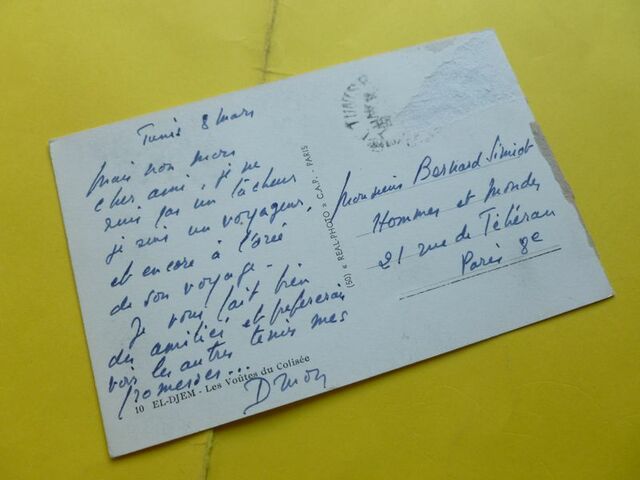 Tunis 8 mars
Mais non mon
cher ami, je ne
suis pas un lâcheur
je suis un voyageur,
et encore à l'orée
de son voyage -
Je vous fait bien
des amitiés et préférerais
voir les autres tenir mes
promesses...
10 EL-DJEM - Les Voûtes du Colisée
(50) « REAL-PHOTO » C.A.P. - PARIS
TUNIS
Monsieur Bernard Simiot
Hommes et Mondes
21 rue de Téhéran
Paris 8e